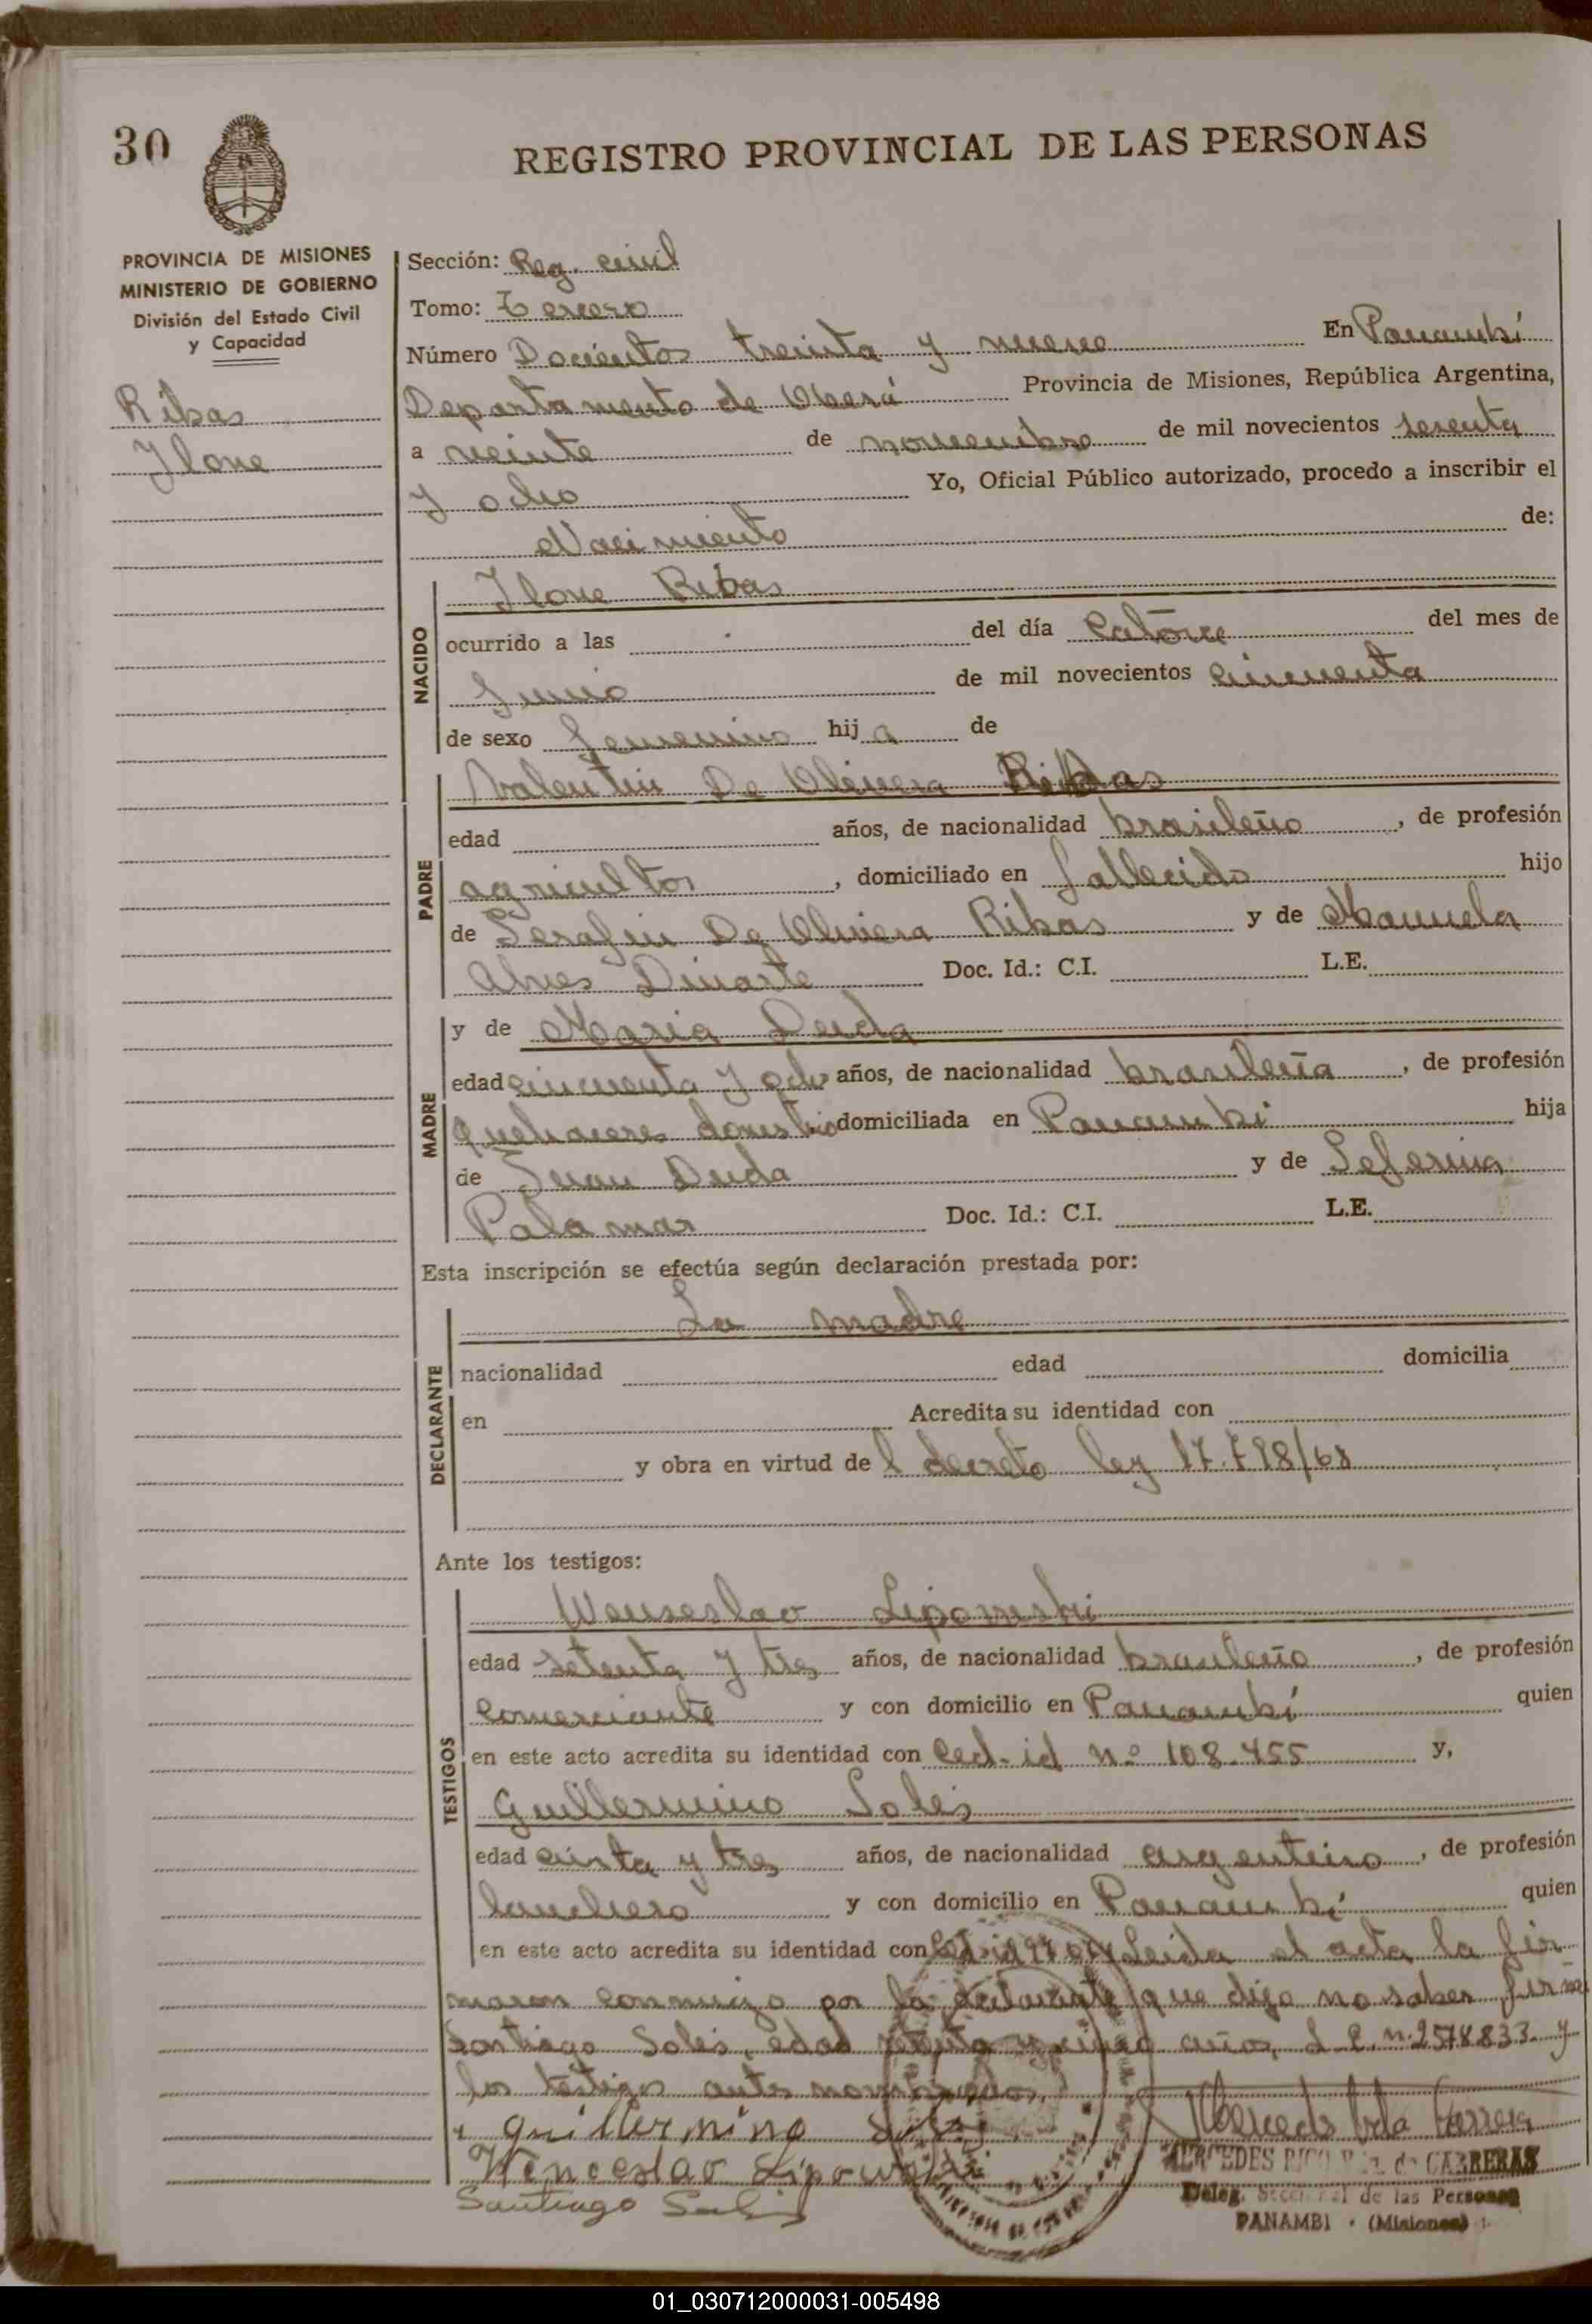 30
REGISTRO PROVINCIAL DE LAS PERSONAS
PROVINCIA DE MISIONES
MINISTERIO DE GOBIERNO
División del Estado Civil
y Capacidad
Ribas
Ilone
Sección: Reg. civil
Tomo: Tercero
Número Docientos treinta y nueve En Panambí
Departamento de Oberá Provincia de Misiones, República Argentina,
a veinte de noviembre de mil novecientos sesenta
y ocho Yo, Oficial Público autorizado, procedo a inscribir el
Nacimiento de:
NACIDO
Ilone Ribas
ocurrido a las del día Catorce del mes de
Junio de mil novecientos cincuenta
de sexo femenino hija de
PADRE
Valentin De Olivera Ribas
edad años, de nacionalidad brasileño, de profesión
agricultor, domiciliado en fallecido hijo
de Serafin De Olivera Ribas y de Manuela
Alves Dinarte Doc. Id.: C.I. L.E.
MADRE
y de Maria Duda
edad cincuenta y ocho años, de nacionalidad brasileña, de profesión
quehaceres domestico domiciliada en Panambi hija
de Juan Duda y de Seferina
Palamar Doc. Id.: C.I. L.E.
Esta inscripción se efectúa según declaración prestada por:
DECLARANTE
La madre
nacionalidad edad domicilia
en Acredita su identidad con
y obra en virtud del decreto ley 17.798/68
Ante los testigos:
TESTIGOS
Wenseslao Lipowski
edad setenta y tres años, de nacionalidad brasileño, de profesión
Comerciante y con domicilio en Panambí quien
en este acto acredita su identidad con Ced. id nº 108.455 y,
Guillermino Solis
edad y tres años, de nacionalidad argentino, de profesión
lanchero y con domicilio en Panambí quien
en este acto acredita su identidad con Leida el acta la fir
maron conmigo por la declarante que dijo no saber firmar
Santiago Solis, edad años, L.E. n. 2578833 y
los testigos antes nombrados,
Guillermino Solis
Wenceslao Lipowski
Santiago Solis
MERCEDES RICO Vda. de CARRERAS
Deleg. Seccional de las Personas
PANAMBI - (Misiones)
01_030712000031-005498